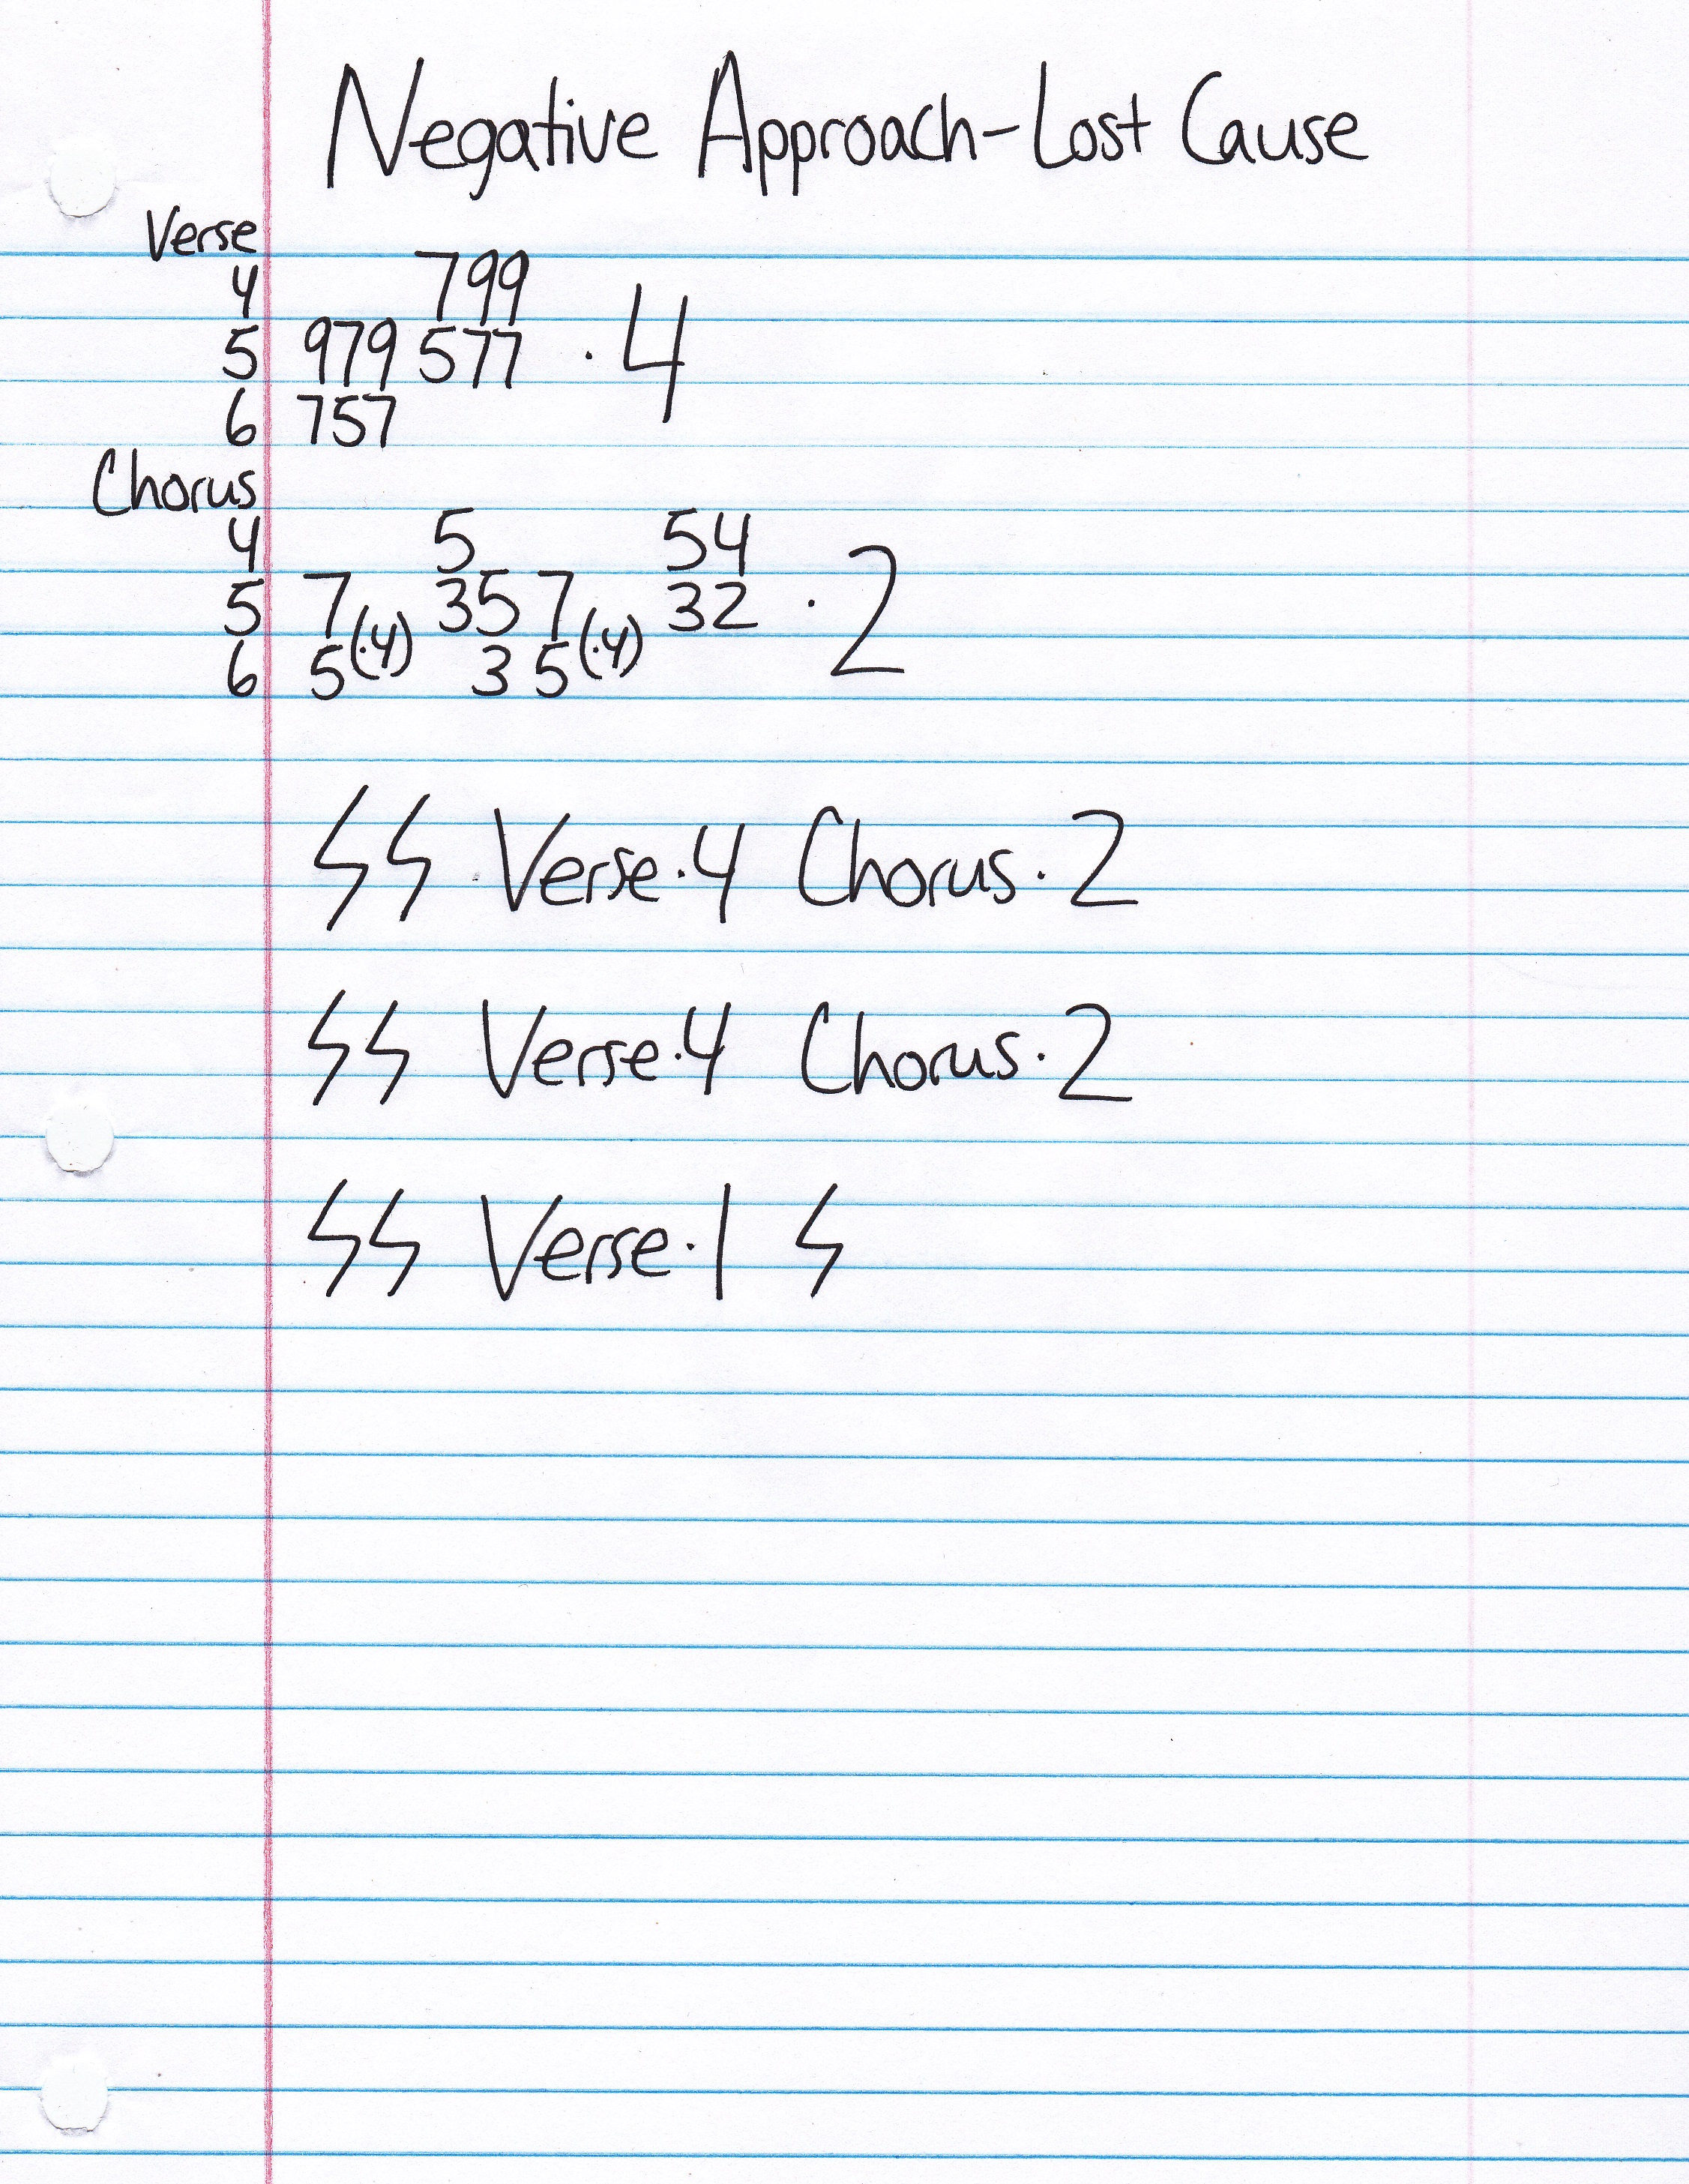 Negative Approach-Lost Cause
Verse
4 799
5 979 577 · 4
6 757
Chorus
4 5 54
5 7 35 7 32 · 2
6 5 (·4) 3 5 (·4)
ϟϟ Verse·4 Chorus·2
ϟϟ Verse·4 Chorus·2
ϟϟ Verse·1 ϟ